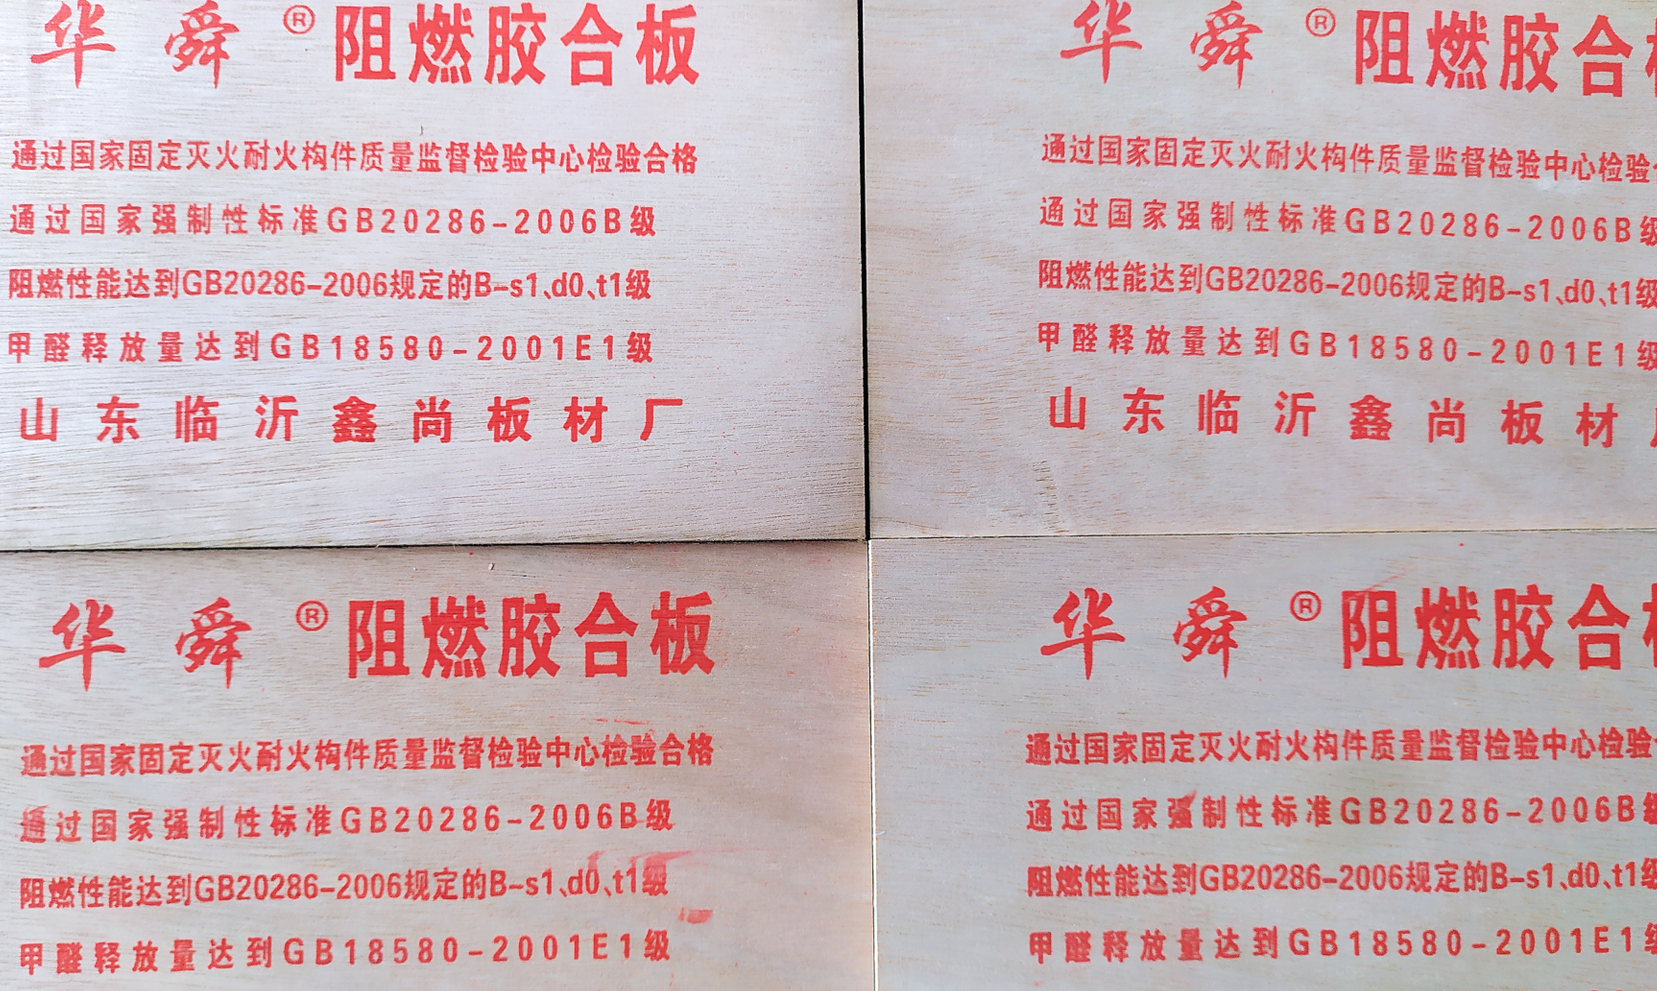 华舜®阻燃胶合板
通过国家固定灭火耐火构件质量监督检验中心检验合格
通过国家强制性标准GB20286-2006B级
阻燃性能达到GB20286-2006规定的B-s1、d0、t1级
甲醛释放量达到GB18580-2001E1级
山东临沂鑫尚板材厂
华舜®阻燃胶合
通过国家固定灭火耐火构件质量监督检验中心检验
通过国家强制性标准GB20286-2006B级
阻燃性能达到GB20286-2006规定的B-s1、d0、t1级
甲醛释放量达到GB18580-2001E1级
山东临沂鑫尚板材
华舜®阻燃胶合板
通过国家固定灭火耐火构件质量监督检验中心检验合格
通过国家强制性标准GB20286-2006B级
阻燃性能达到GB20286-2006规定的B-s1、d0、t1级
甲醛释放量达到GB18580-2001E1级
华舜®阻燃胶合
通过国家固定灭火耐火构件质量监督检验中心检验
通过国家强制性标准GB20286-2006B级
阻燃性能达到GB20286-2006规定的B-s1、d0、t1级
甲醛释放量达到GB18580-2001E1级